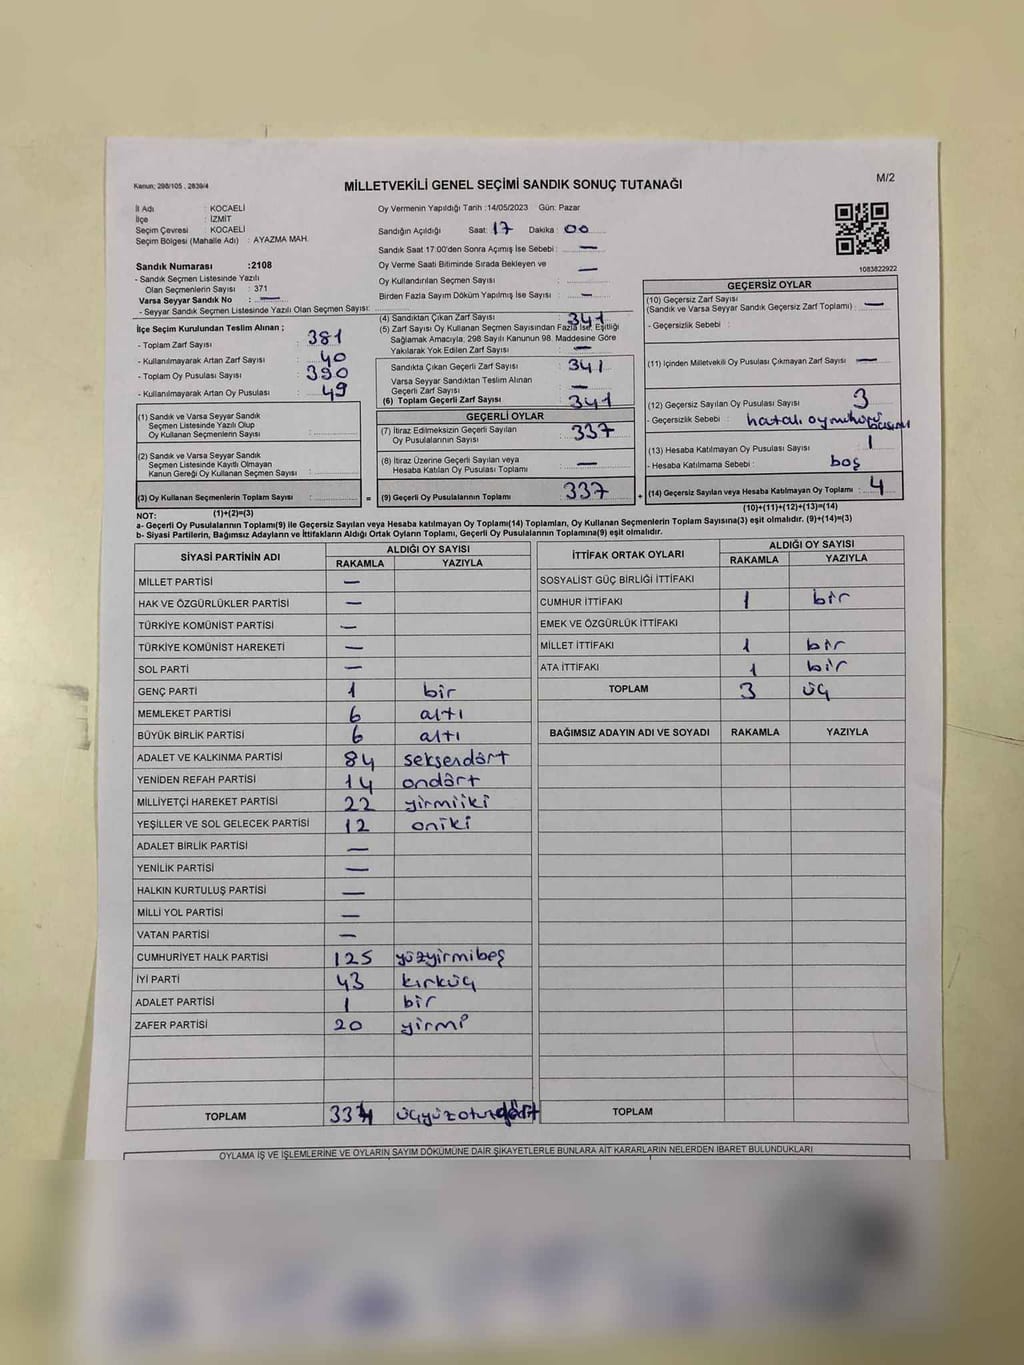 Kanun; 298/105, 2839/4
MİLLETVEKİLİ GENEL SEÇİMİ SANDIK SONUÇ TUTANAĞI
M/2
İl Adı : KOCAELİ
İlçe : İZMİT
Seçim Çevresi : KOCAELİ
Seçim Bölgesi (Mahalle Adı) : AYAZMA MAH.
Sandık Numarası :2108
- Sandık Seçmen Listesinde Yazılı
Olan Seçmenlerin Sayısı : 371
Varsa Seyyar Sandık No : —
- Seyyar Sandık Seçmen Listesinde Yazılı Olan Seçmen Sayısı:
Oy Vermenin Yapıldığı Tarih :14/05/2023 Gün: Pazar
Sandığın Açıldığı Saat: 17 Dakika: 00
Sandık Saat 17:00'den Sonra Açımış İse Sebebi : —
Oy Verme Saati Bitiminde Sırada Bekleyen ve
Oy Kullandırılan Seçmen Sayısı : —
Birden Fazla Sayım Döküm Yapılmış İse Sayısı : —
1083822922
İlçe Seçim Kurulundan Teslim Alınan ;
- Toplam Zarf Sayısı : 381
- Kullanılmayarak Artan Zarf Sayısı : 40
- Toplam Oy Pusulası Sayısı : 390
- Kullanılmayarak Artan Oy Pusulası : 49
(1) Sandık ve Varsa Seyyar Sandık
Seçmen Listesinde Yazılı Olup
Oy Kullanan Seçmenlerin Sayısı :
(2) Sandık ve Varsa Seyyar Sandık
Seçmen Listesinde Kayıtlı Olmayan
Kanun Gereği Oy Kullanan Seçmen Sayısı :
(3) Oy Kullanan Seçmenlerin Toplam Sayısı :
(4) Sandıktan Çıkan Zarf Sayısı : 341
(5) Zarf Sayısı Oy Kullanan Seçmen Sayısından Fazla İse, Eşitliği
Sağlamak Amacıyla, 298 Sayılı Kanunun 98. Maddesine Göre
Yakılarak Yok Edilen Zarf Sayısı : —
Sandıkta Çıkan Geçerli Zarf Sayısı : 341
Varsa Seyyar Sandıktan Teslim Alınan
Geçerli Zarf Sayısı : —
(6) Toplam Geçerli Zarf Sayısı : 341
GEÇERLİ OYLAR
(7) İtiraz Edilmeksizin Geçerli Sayılan
Oy Pusulalarının Sayısı : 337
(8) İtiraz Üzerine Geçerli Sayılan veya
Hesaba Katılan Oy Pusulası Toplamı : —
= (9) Geçerli Oy Pusulalarının Toplamı : 337
GEÇERSİZ OYLAR
(10) Geçersiz Zarf Sayısı
(Sandık ve Varsa Seyyar Sandık Geçersiz Zarf Toplamı) : —
- Geçersizlik Sebebi :
(11) İçinden Milletvekili Oy Pusulası Çıkmayan Zarf Sayısı : —
(12) Geçersiz Sayılan Oy Pusulası Sayısı : 3
- Geçersizlik Sebebi : hatalı oy mührü basımı
(13) Hesaba Katılmayan Oy Pusulası Sayısı : 1
- Hesaba Katılmama Sebebi : boş
+ (14) Geçersiz Sayılan veya Hesaba Katılmayan Oy Toplamı : 4
NOT: (1)+(2)=(3)
(10)+(11)+(12)+(13)=(14)
a- Geçerli Oy Pusulalarının Toplamı(9) ile Geçersiz Sayılan veya Hesaba katılmayan Oy Toplamı(14) Toplamları, Oy Kullanan Seçmenlerin Toplam Sayısına(3) eşit olmalıdır. (9)+(14)=(3)
b- Siyasi Partilerin, Bağımsız Adayların ve İttifakların Aldığı Ortak Oyların Toplamı, Geçerli Oy Pusulalarının Toplamına(9) eşit olmalıdır.
SİYASİ PARTİNİN ADI
ALDIĞI OY SAYISI
RAKAMLA YAZIYLA
MİLLET PARTİSİ —
HAK VE ÖZGÜRLÜKLER PARTİSİ —
TÜRKİYE KOMÜNİST PARTİSİ —
TÜRKİYE KOMÜNİST HAREKETİ —
SOL PARTİ —
GENÇ PARTİ 1 bir
MEMLEKET PARTİSİ 6 altı
BÜYÜK BİRLİK PARTİSİ 6 altı
ADALET VE KALKINMA PARTİSİ 84 seksendört
YENİDEN REFAH PARTİSİ 14 ondört
MİLLİYETÇİ HAREKET PARTİSİ 22 yirmiiki
YEŞİLLER VE SOL GELECEK PARTİSİ 12 oniki
ADALET BİRLİK PARTİSİ —
YENİLİK PARTİSİ —
HALKIN KURTULUŞ PARTİSİ —
MİLLİ YOL PARTİSİ —
VATAN PARTİSİ —
CUMHURİYET HALK PARTİSİ 125 yüzyirmibeş
İYİ PARTİ 43 kırküç
ADALET PARTİSİ 1 bir
ZAFER PARTİSİ 20 yirmi
TOPLAM 334 üçyüzotuzdört
İTTİFAK ORTAK OYLARI
ALDIĞI OY SAYISI
RAKAMLA YAZIYLA
SOSYALİST GÜÇ BİRLİĞİ İTTİFAKI
CUMHUR İTTİFAKI 1 bir
EMEK VE ÖZGÜRLÜK İTTİFAKI
MİLLET İTTİFAKI 1 bir
ATA İTTİFAKI 1 bir
TOPLAM 3 üç
BAĞIMSIZ ADAYIN ADI VE SOYADI RAKAMLA YAZIYLA
TOPLAM
OYLAMA İŞ VE İŞLEMLERİNE VE OYLARIN SAYIM DÖKÜMÜNE DAİR ŞİKAYETLERLE BUNLARA AİT KARARLARIN NELERDEN İBARET BULUNDUKLARI